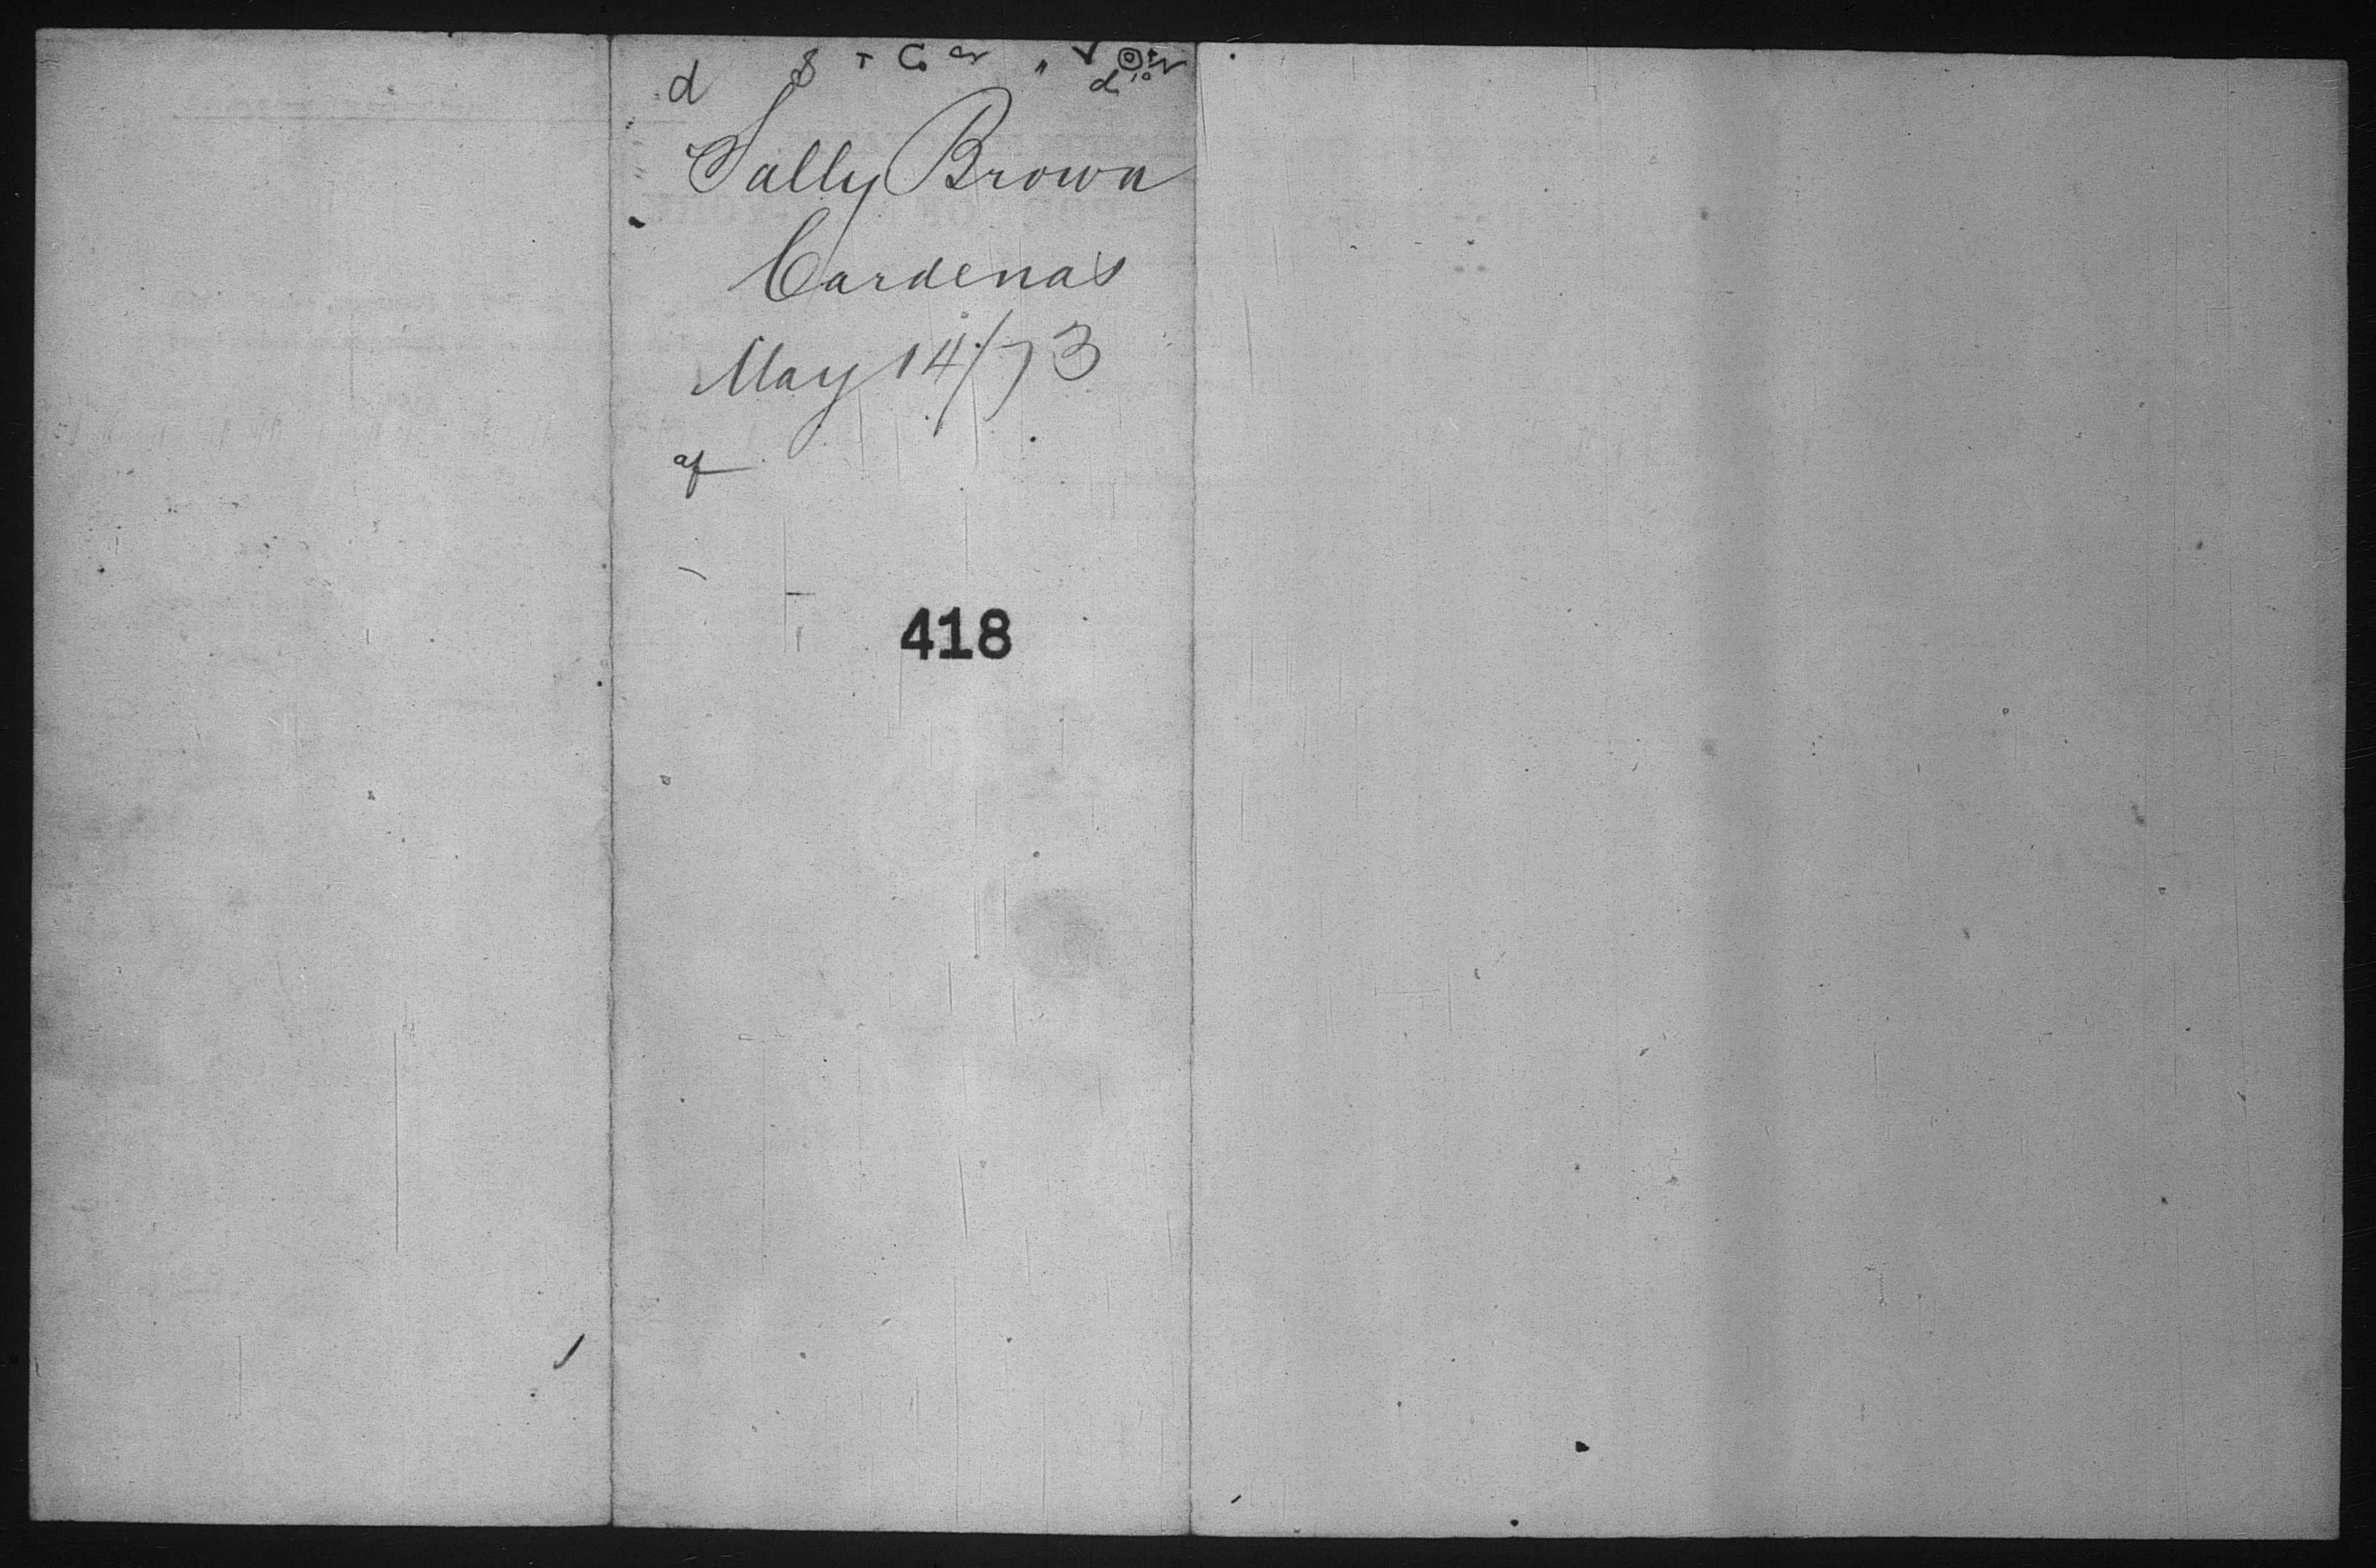 d
Sally Brown
Cardenas
May 14/73
af
418